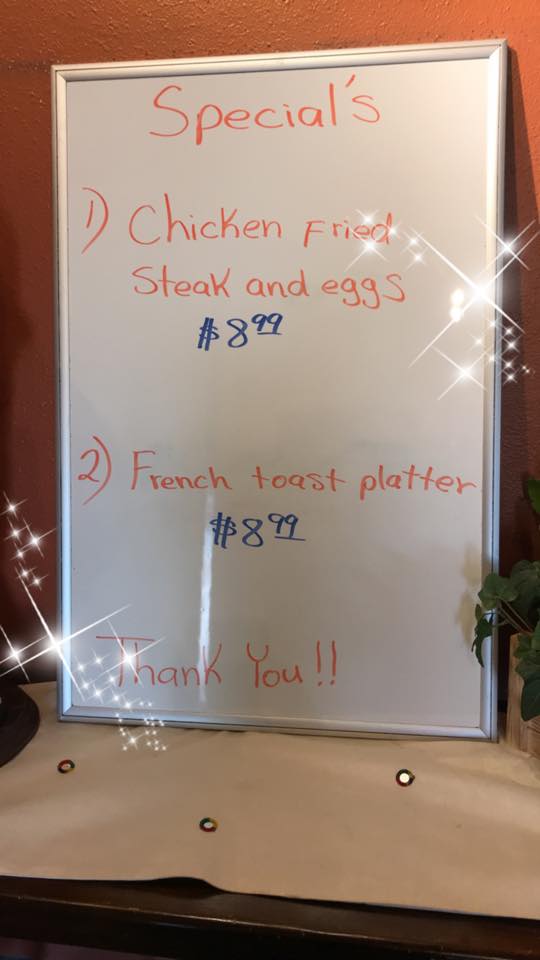 Special's
1) Chicken Fried
Steak and eggs
$8.99
2) French toast platter
$8.99
Thank You!!